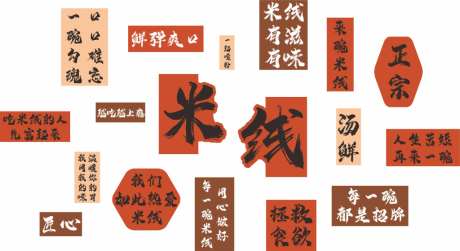 口口难忘
一碗勾魂
鲜弹爽口
一招鲜
米线
有滋
有味
来碗米线
正宗
吃米线的人
扎富起来
越吃越上瘾
米线
汤鲜
人生苦短
再来一碗
温暖你的胃
我用我的味
我们
如此热爱
米线
用心做好
每一碗米线
匠心
拯救
食欲
每一碗
都是招牌